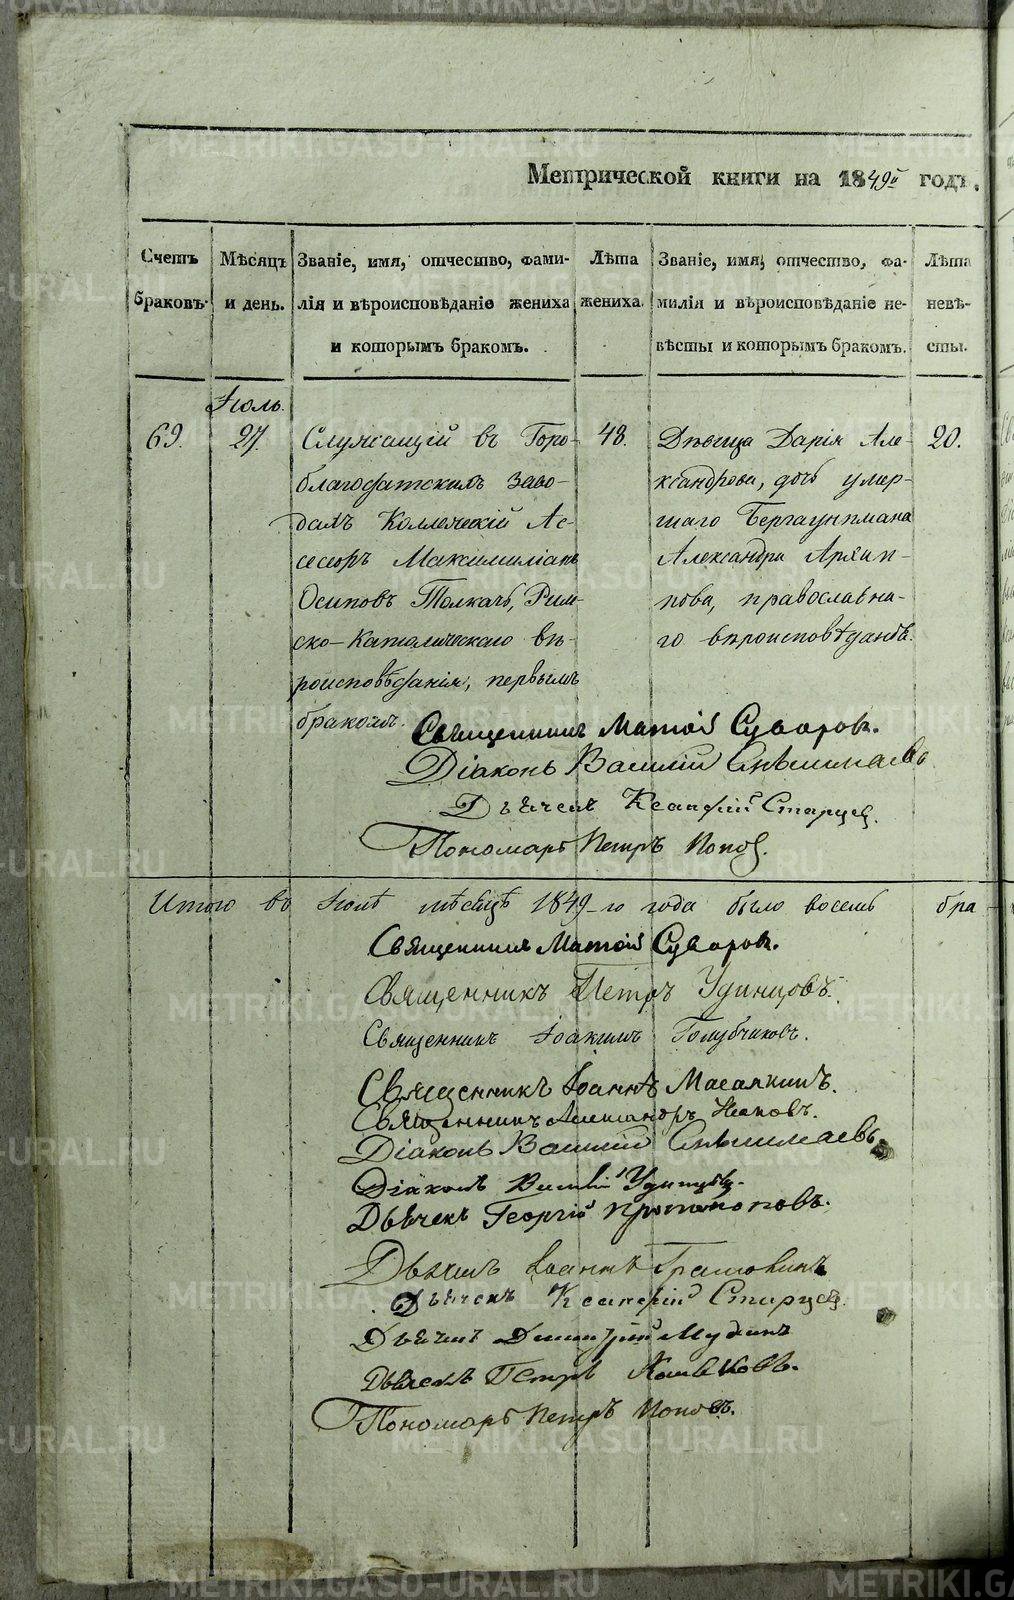 Метрической книги на 1849й годъ.
Счетъ браковъ.
Мѣсяцъ и день.
Званіе, имя, отчество, фами-
лія и вѣроисповѣданіе жениха
и которымъ бракомъ.
Лѣта жениха.
Званіе, имя, отчество, фа-
милія и вѣроисповѣданіе не-
вѣсты и которымъ бракомъ.
Лѣта невѣ-
сты.
Іюль.
69.
27.
Служащій въ Горо-
благодатскихъ заво-
дахъ Коллежскій Ас-
сесоръ Максимиліанъ
Осиповъ Толкачъ, Рим-
ско-Католическаго вѣ-
роисповѣданія, первымъ
бракомъ.
48.
Дѣвица Дарія Але-
ксандрова, дочь умер-
шаго Бергауптмана
Александра Архип-
пова, православна-
го вѣроисповѣданія.
20.
Священникъ Матѳій Суворовъ.
Діаконъ Василій
Дьячекъ Ксенофій Старцев.
Пономарь Петръ Попов.
Итого въ Іюлѣ мѣсяцѣ 1849-го года было восемь бра-
Священникъ Матѳій Суворовъ.
Священникъ Петръ Удинцовъ.
Священникъ Іоакимъ Голубчиковъ.
Священникъ Іоаннъ
Священникъ Александръ
Діаконъ Василій
Діаконъ Василій Удинцовъ.
Дьячекъ Георгій Протопоповъ.
Дьячекъ Іоаннъ
Дьячекъ Ксенофій Старцев.
Дьячекъ Димитрій
Дьячекъ Петръ
Пономарь Петръ Поповъ.
METRIKI.GASO-URAL.RU